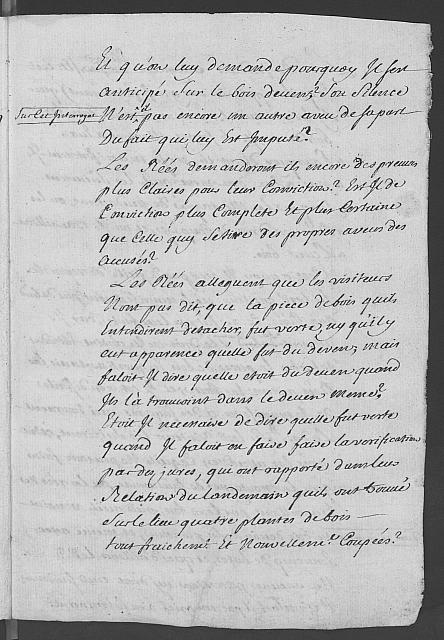 Et qu'on luy demande pourquoy Il s'est
anticipé sur le bois deven? Son Silence
sur Cet Interrogat
N'est pas encore un autre aveu de sa part
Du fait qui luy Est Imputé?
Les Réés demanderont ils encore des preuves
plus Claires pour leur Conviction? Est Il de
Conviction plus Complete Et plus Certaine
que Celle quy se tire des propres aveus des
accusés?
Les Réés alleguent que les visiteurs
N'ont pas dit, que la piece de bois quils
Entendirent detacher, fut verte, ny quil y
eut apparence qu'elle fut du deven; mais
faloit Il dire quelle etoit du deven quand
Ils la trouvoint dans le deven meme?
Etoit Il necessaire de dire quelle fut verte
quand Il faloit en faire faire la verification
par des jures, qui ont rapporté dans leur
Relation du landemain quils ont trouvé
sur le lieu quatre plantes de bois
tout fraichemt. Et Nouvellemt. Coupées?